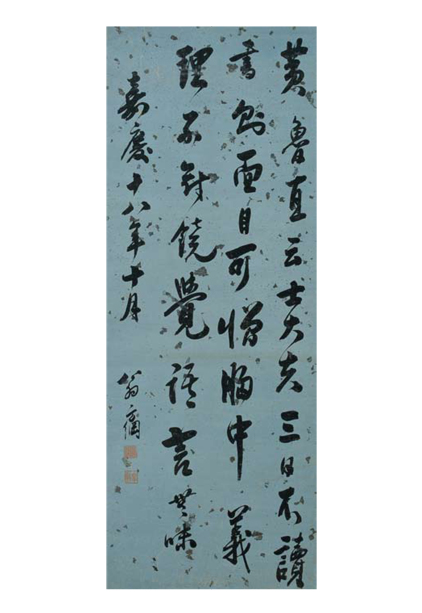 黄魯直云士大夫三日不讀
書則面目可憎胸中義
理不對鏡覺語言無味
嘉慶十八年十月
翁